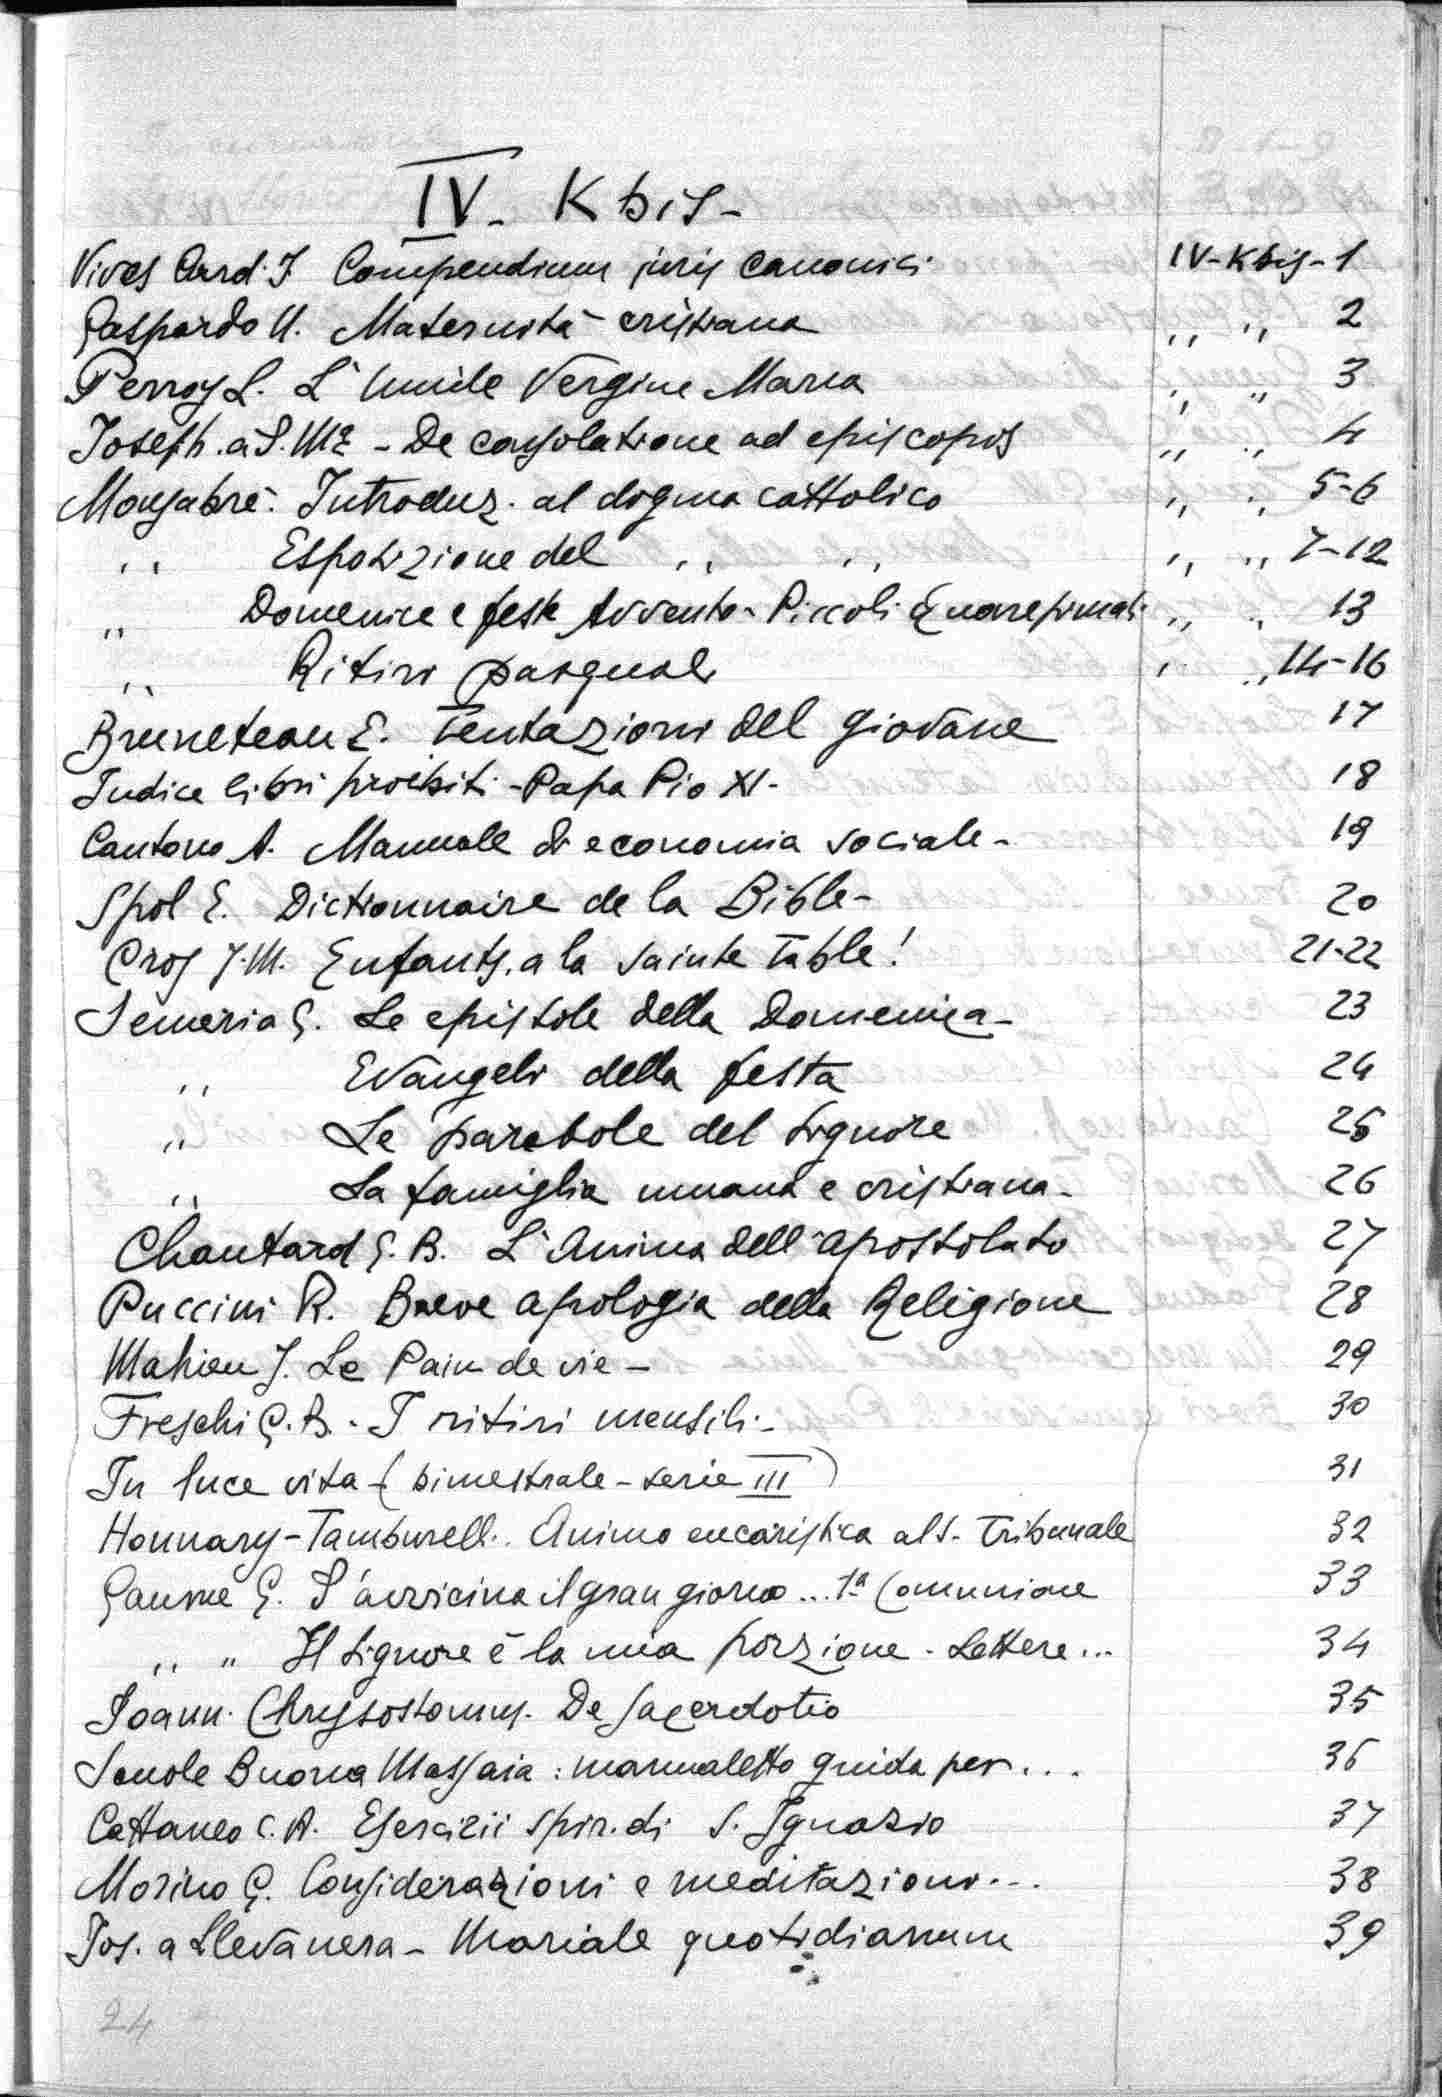 IV - K bis -
Vives Card. J Compendium juris canonici IV-Kbis-1
Gaspardo U. Maternità cristiana ,, ,, 2
Perroy L. L'umile Vergine Maria ,, ,, 3
Joseph. a S. Mª - De consolatione ad episcopos ,, ,, 4
Monsabrè: Introduz. al dogma cattolico ,, ,, 5-6
,, Esposizione del ,, ,, ,, ,, 7-12
,, Domenice e feste Avvento - Piccoli Quaresimali ,, ,, 13
,, Ritiri pasquali ,, ,, 14-16
Bruneteau E. Tentazioni del giovane 17
Indice libri proibiti - Papa Pio XI - 18
Cantono A. Manuale di economia sociale - 19
Spol E. Dictionnaire de la Bible - 20
Cros J.M. Enfants, a la sainte table! 21-22
Semeria G. Le epistole della Domenica - 23
,, Evangeli della festa 24
,, Le parabole del Signore 25
,, La famiglia umana e cristiana - 26
Chautard G. B. L'Anima dell'apostolato 27
Puccini R. Breve apologia della Religione 28
Mahieu J. Le Pain de vie - 29
Freschi G. B. - I ritiri mensili - 30
In luce vita - (bimestrale - serie III) 31
Honnary - Tamburell. Anima eucaristica al S. Tribunale 32
Gaume G. S'avvicina il gran giorno ... 1ª Comunione 33
,, ,, Il Signore è la mia porzione - Lettere ... 34
Joann. Chrysostomus. De Sacerdotio 35
Scuole Buona Massaia: manualetto guida per ... 36
Cattaneo C. A. Esercizii spir. di S. Ignazio 37
Morino G. Considerazioni e meditazioni ... 38
Jos. a Llevanera - Mariale quotidianum 39
24